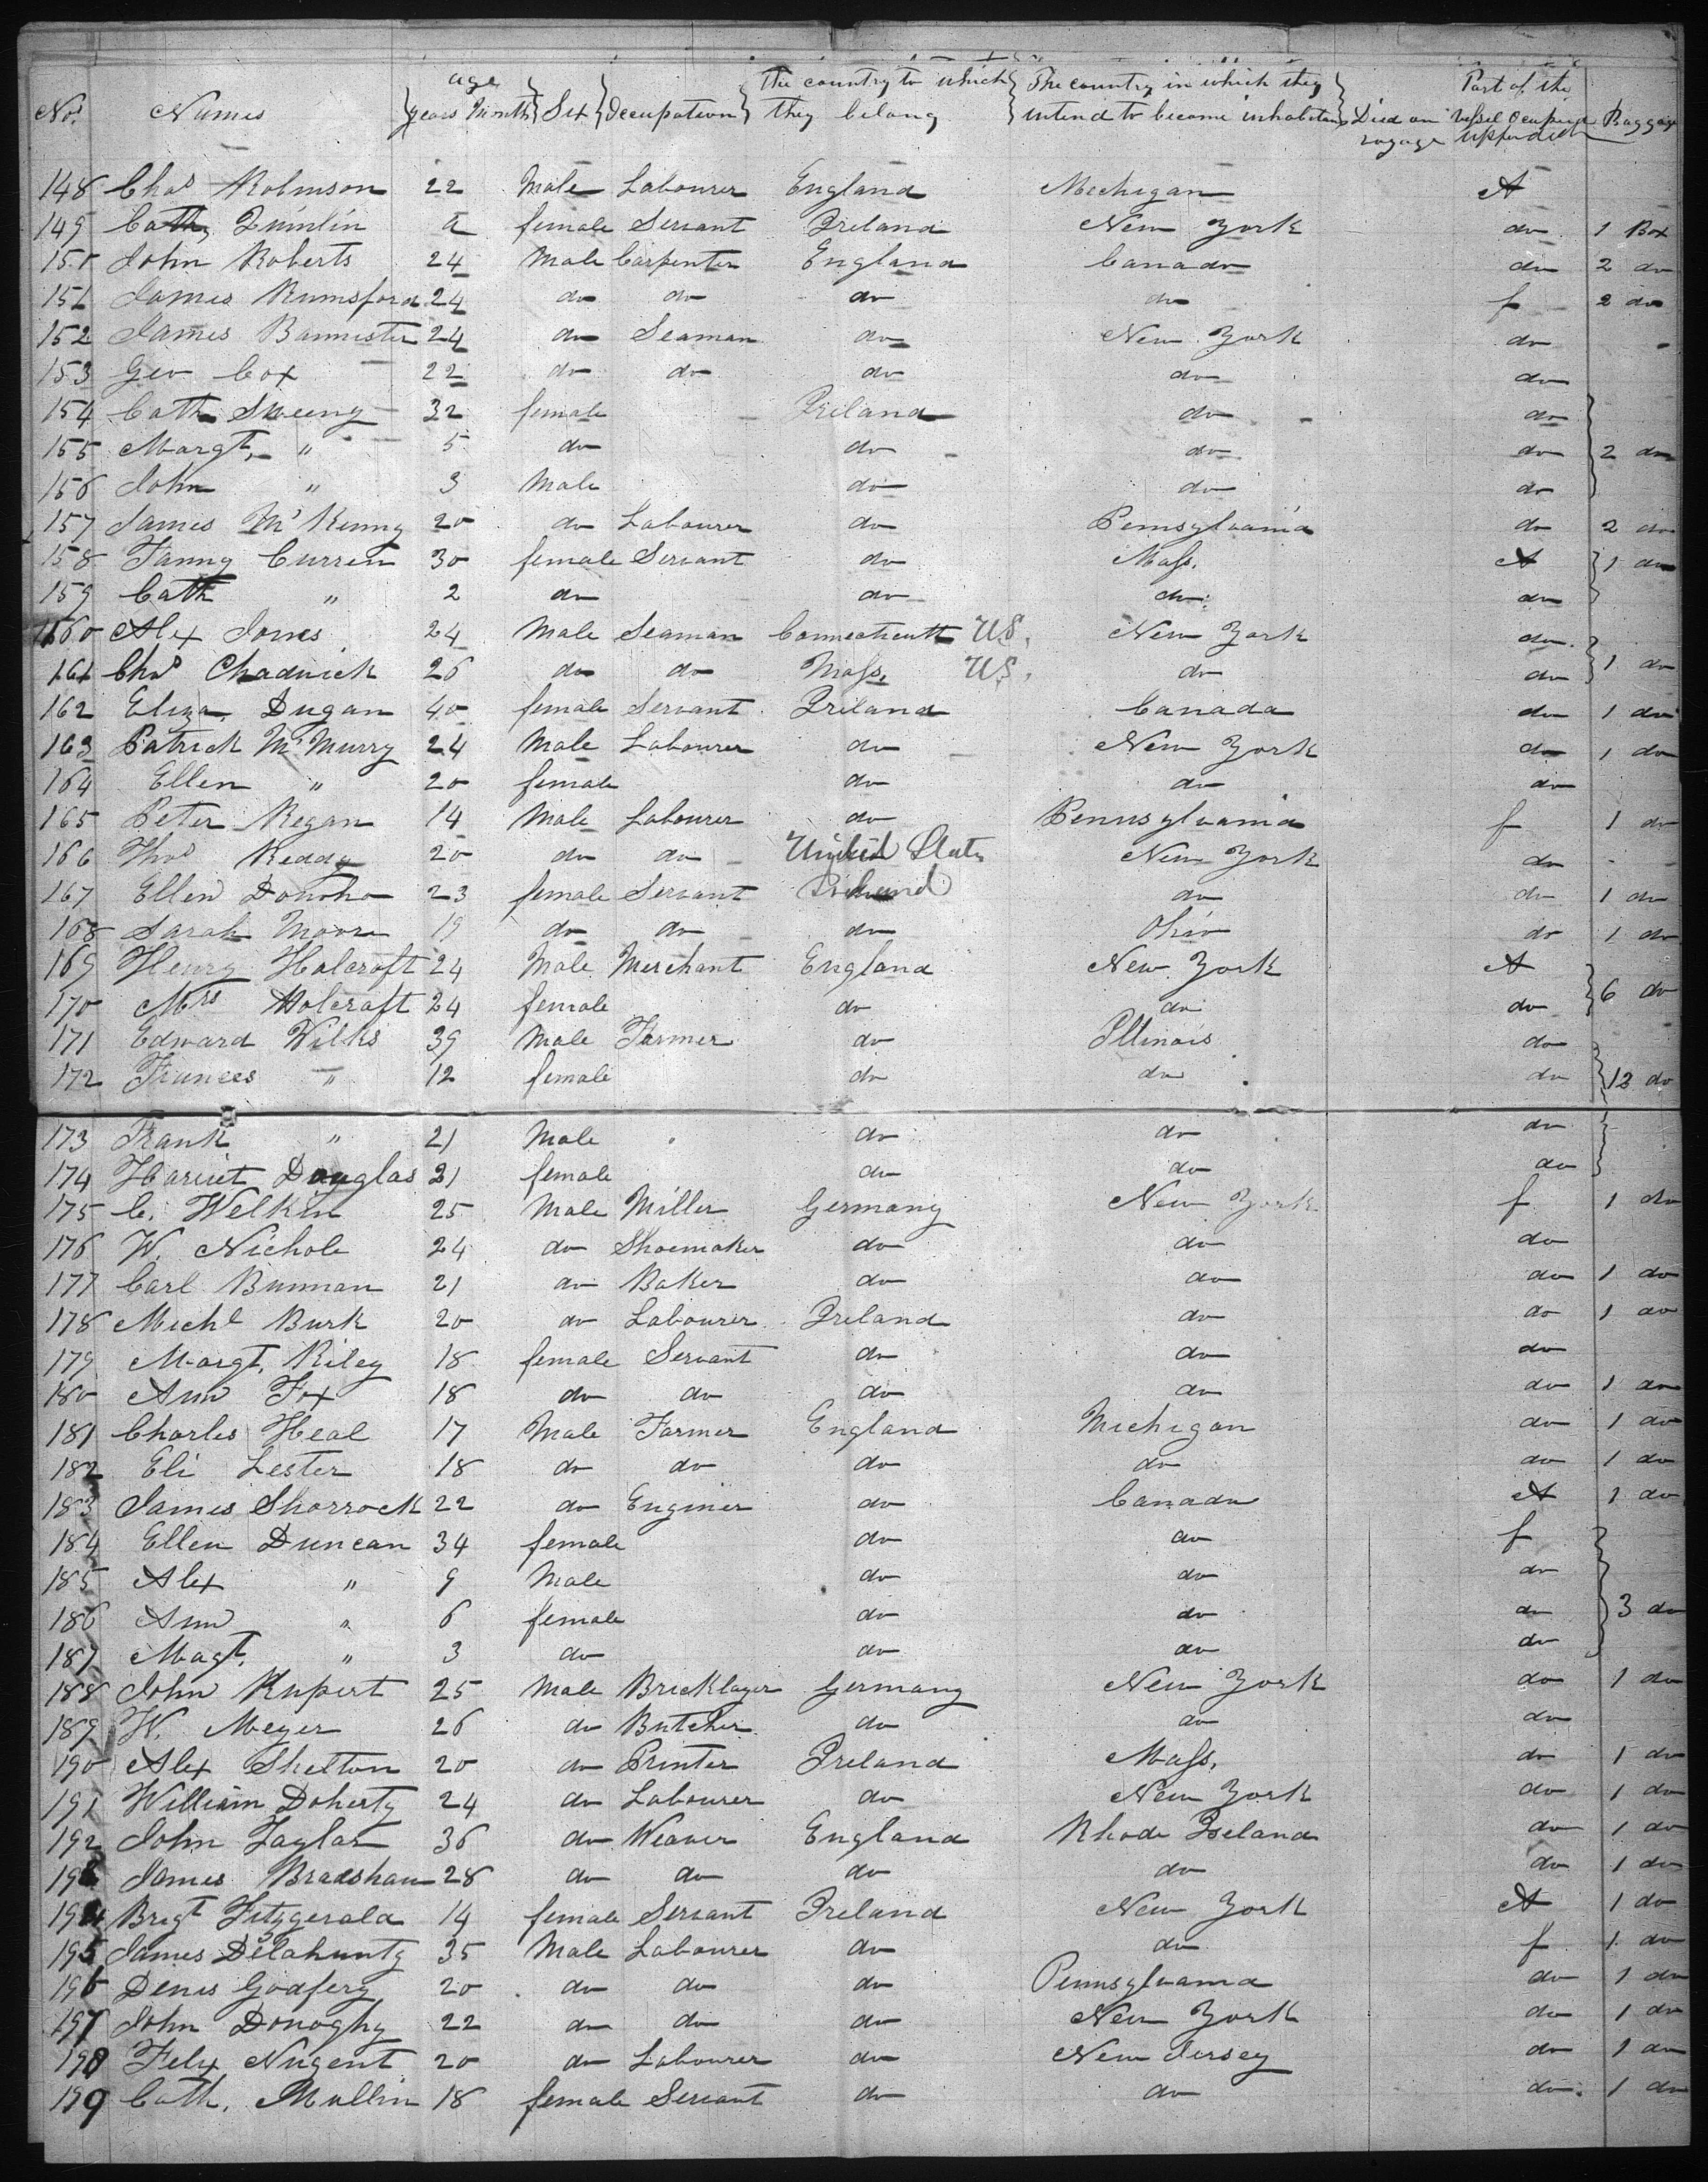 No. Names age years Month Sex Occupation The country to which they belong The country in which they intend to become inhabitans Died on voyage Part of the Vessel Ocupied Baggage
148 Chas Robinson 22 Male Labourer England Mechigan A
149 Cath, Quinlin a female Servant Ireland New York do 1 Box
150 John Roberts 24 Male Carpenter England Canada do 2 do
151 James Rumsford 24 do do do do f 2 do
152 James Bannister 24 do Seaman do New York do
153 Geo Cox 22 do do do do do
154 Cath Sweeny 32 female Ireland do do
155 Margt, " 5 do do do do 2 do
156 John " 3 Male do do do
157 James Mc Kenny 20 do Labourer do Pennsylvania do 2 do
158 Fanny Curren 30 female Servant do Mass. A 1 do
159 Cath " 2 do do do do
160 Alex Jones 24 Male Seaman Connecticutt US. New York do
161 Chas Chadwick 26 do do Mass, US. do do 1 do
162 Eliza, Dugan 40 female Servant Ireland Canada do 1 do
163 Patrick Mc Murry 24 Male Labourer do New York do 1 do
164 Ellen " 20 female do do do
165 Peter Regan 14 Male Labourer do Pennsylvania f 1 do
166 Thos Reddy 20 do do United States New York do
167 Ellen Donoho 23 female Servant Ireland do do 1 do
168 Sarah Moore 19 do do do Ohio do 1 do
169 Henry Holcroft 24 Male Merchant England New York A
170 Mrs Holcroft 24 female do do do 6 do
171 Edward Wilks 39 Male Farmer do Illinois do
172 Frances " 12 female do do do 12 do
173 Frank " 21 Male do do do
174 Harriet Douglas 21 female do do do
175 C. Welkin 25 Male Miller Germany New York f 1 do
176 W. Nichole 24 do Shoemaker do do do
177 Carl Bunman 21 do Baker do do do 1 do
178 Michl Burk 20 do Labourer Ireland do do 1 do
179 Margt, Riley 18 female Servant do do do
180 Ann Fox 18 do do do do do 1 do
181 Charles Heal 17 Male Farmer England Michigan do 1 do
182 Eli Lester 18 do do do do do 1 do
183 James Shorrock 22 do Enginer do Canada A 1 do
184 Ellen Duncan 34 female do do f
185 Alex " 9 Male do do do
186 Ann " 6 female do do do 3 do
187 Magt, " 3 do do do do
188 John Rupert 25 Male Bricklayer Germany New York do 1 do
189 W. Meyer 26 do Butcher do do do
190 Alex Shelton 20 do Printer Ireland Mass, do 1 do
191 William Doherty 24 do Labourer do New York do 1 do
192 John Taylor 36 do Weaver England Rhode Iseland do 1 do
193 James Bradshaw 28 do do do do do 1 do
194 Brigt Fitzgerald 14 female Servant Ireland New York A 1 do
195 James Delahunty 35 Male Labourer do do f 1 do
196 Denis Godfery 20 do do do Pennsylvania do 1 do
197 John Donoghy 22 do do do New York do 1 do
198 Felix Nugent 20 do Labourer do New Jersey do 1 do
199 Cath, Mullin 18 female Servant do do do 1 do